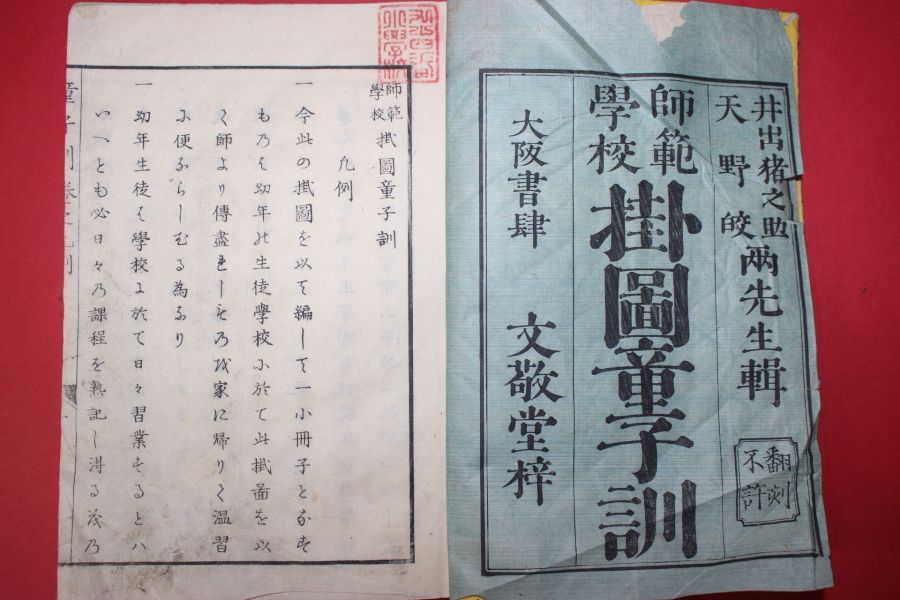 井出猪之助
天野皎
兩先生輯
翻刻
不許
師範
學校
掛圖童子訓
大阪書肆 文敬堂梓
師範
學校
掛圖童子訓
凡例
一 今此の掛圖を以て編して一小冊子となす
ものは幼年の生徒學校に於て此掛圖を以
て師より傳盡れしものを家に帰りて温習
に便ならしむる為なり
一 幼年生徒は學校に於て日々習業するとハ
いへとも必日々乃課程を熟記し得る茂乃